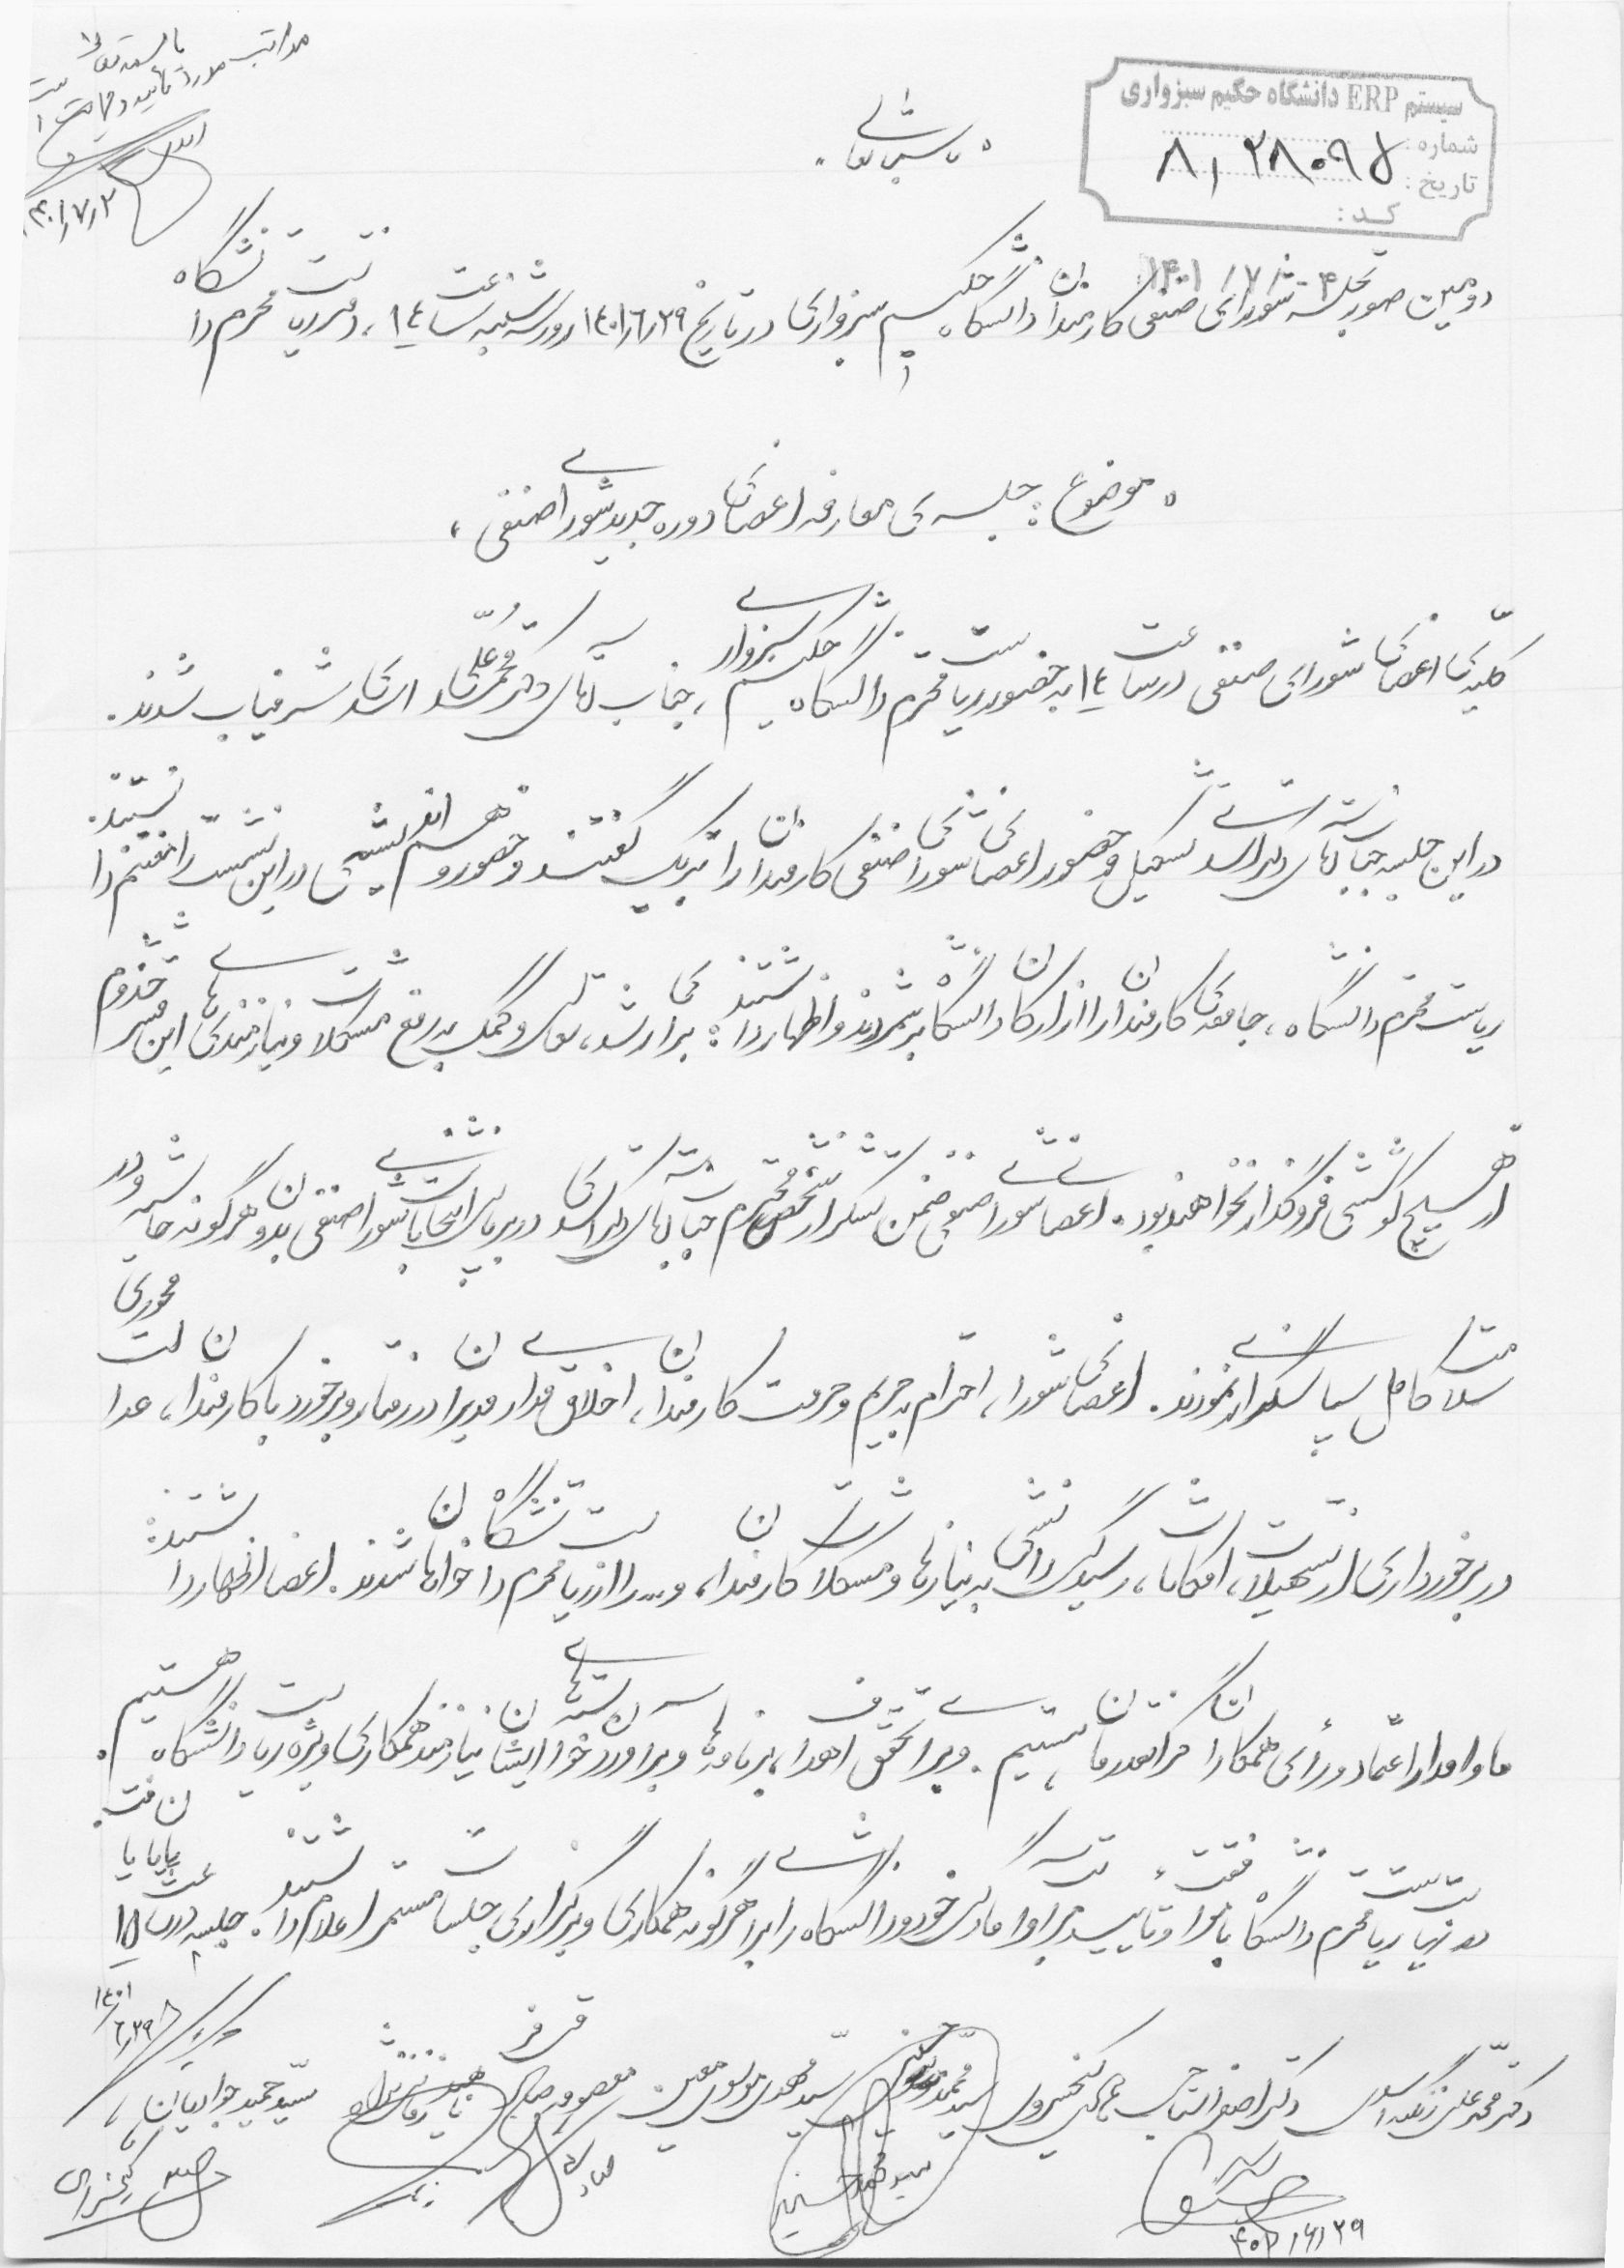 باسمه تعالی
مراتب مورد تایید و حمایت است
۱۴۰۱/۷/۲
سیستم ERP دانشگاه حکیم سبزواری
شماره: ۲۸۰۹۵
تاریخ:
کد:
۱۴۰۱/۷/۴
باسمه تعالی
دومین صورتجلسه شورای صنفی کارمندان دانشگاه حکیم سبزواری در تاریخ ۱۴۰۱/۶/۲۹ روز سه شنبه ساعت ۱۴، دفتر ریاست محترم دانشگاه
موضوع: جلسه ی معارفه اعضای دوره جدید شورای صنفی،
کلیه ی اعضای شورای صنفی در ساعت ۱۴ به حضور ریاست محترم دانشگاه حکیم سبزواری، جناب آقای دکتر محمد علی زنگنه اسدی شرفیاب شدند.
در این جلسه جناب آقای دکتر زنگنه اسدی تشکیل و حضور اعضای شورای صنفی کارمندان را تبریک گفتند و حضور و هم اندیشی در این نشست را مغتنم دانستند.
ریاست محترم دانشگاه، جامعه ی کارمندان را از ارکان دانشگاه برشمردند و اظهار داشتند: برای رشد، تعالی و کمک به رفع مشکلات و نیازمندی های این قشر خدوم
از هیچ کوششی فروگذار نخواهند بود. اعضای شورای صنفی ضمن تشکر از شخص محترم جناب آقای دکتر زنگنه اسدی در برپایی انتخابات شورای صنفی بدون هرگونه حاشیه و در
سلامت کامل سپاسگزاری نمودند. اعضای شورا، احترام به حریم و حرمت کارمندان، اخلاق مداری مدیران در رفتار و برخورد با کارمندان، عدالت محوری
در برخورداری از تسهیلات، امکانات، رسیدگی دانشی به نیازها و مشکلات کارمندان، و... را از ریاست محترم دانشگاه خواهان شدند. اعضا اظهار داشتند:
ما وامدار اعتماد و رأی همکاران گرانقدرمان هستیم. و برای تحقق اهداف، برنامه ها و برآوردن خواسته های ایشان نیازمند همکاری ویژه ریاست دانشگاه هستیم.
در نهایت ریاست محترم دانشگاه با موافقت و تایید مراتب آمادگی خود و دانشگاه را برای هرگونه همکاری و برگزاری جلسات مستمر اعلام داشتند. جلسه در ساعت ۱۵ پایان یافت.
۱۴۰۱/۶/۲۹
دکتر محمد علی زنگنه اسدی
سید محمد حسینی
سید مهدی موسوی معین
سید حمید جوادیان
۱۴۰۱/۶/۲۹